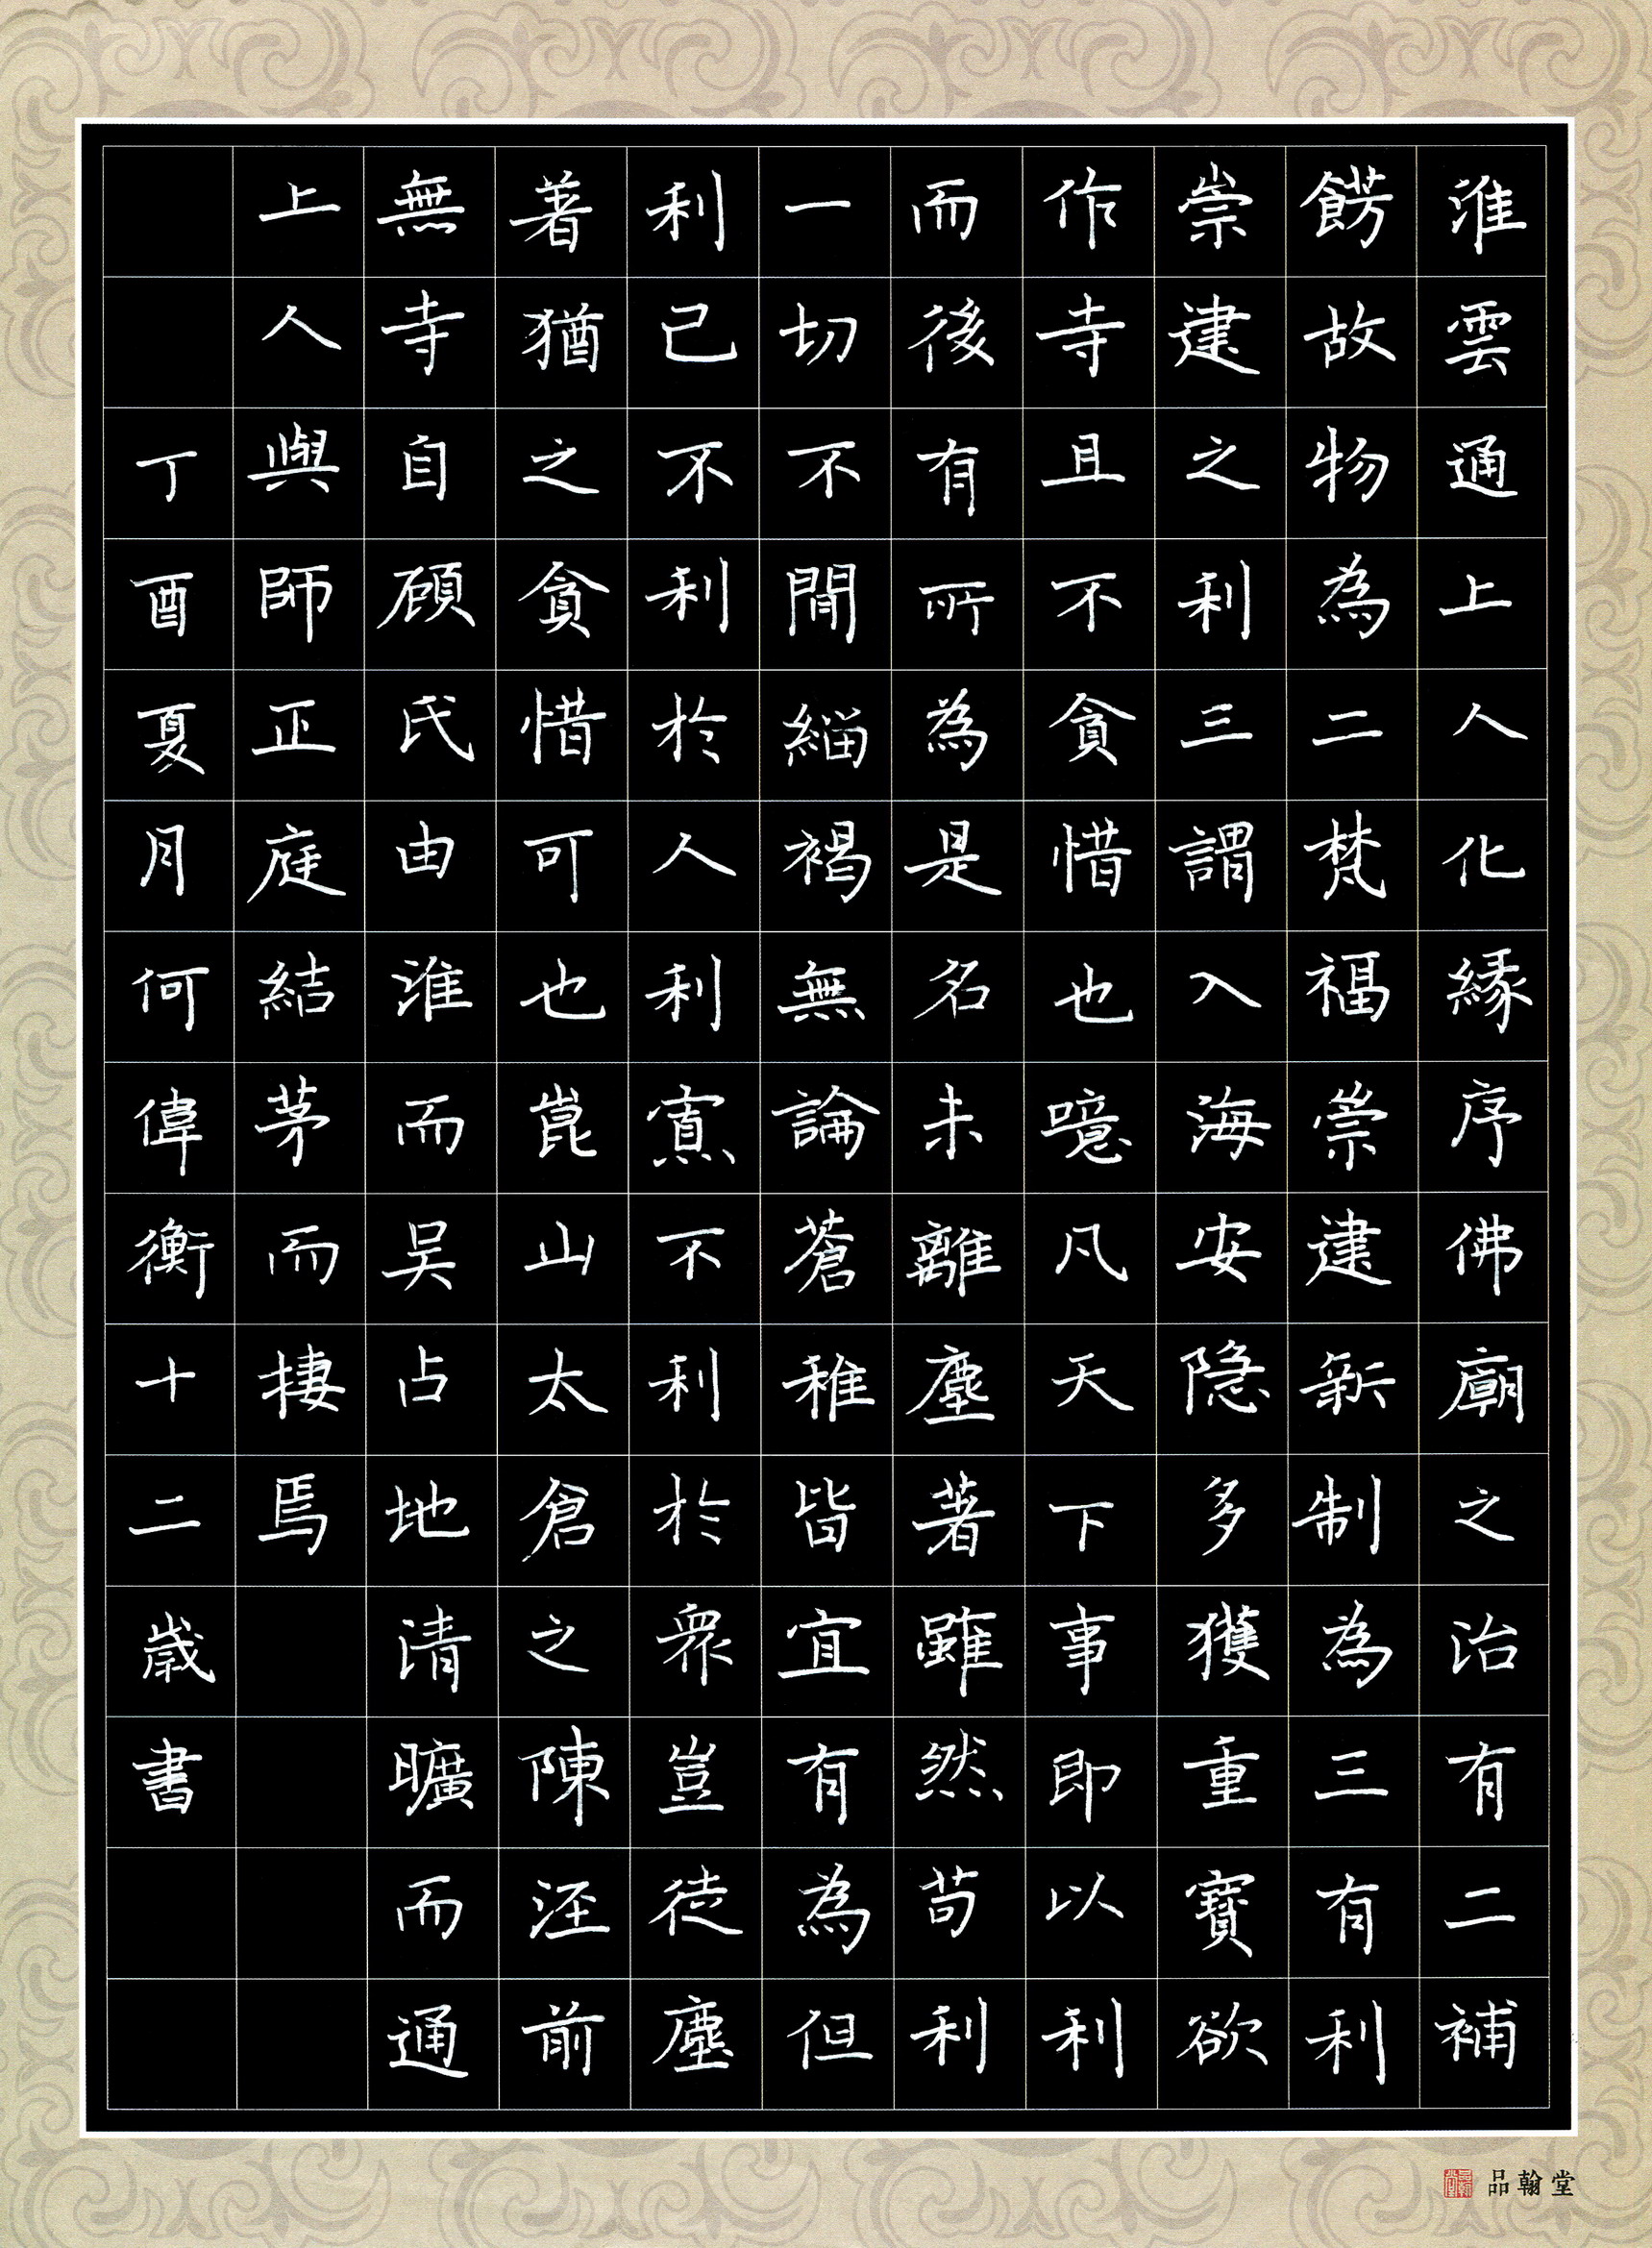 淮雲通上人化緣序佛廟之治有二補
餝故物為二梵福崇建新制為三有利
崇建之利三謂入海安隐多獲重寶欲
作寺且不貪惜也噫凡天下事即以利
而後有所為是名未離塵著雖然苟利
一切不閒緇褐無論蒼稚皆宜有為但
利己不利於人利寡不利於衆豈徒塵
著猶之貪惜可也崑山太倉之陳涇前
無寺自顧氏由淮而吴占地清曠而通
上人與師正庭結茅而捿焉
丁酉夏月何偉衡十二歳書
品翰堂